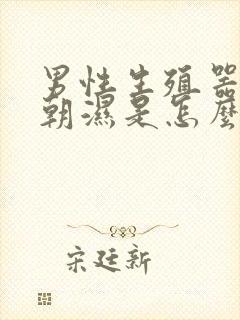 男性生殖器
朝濕是怎麼
宋廷新